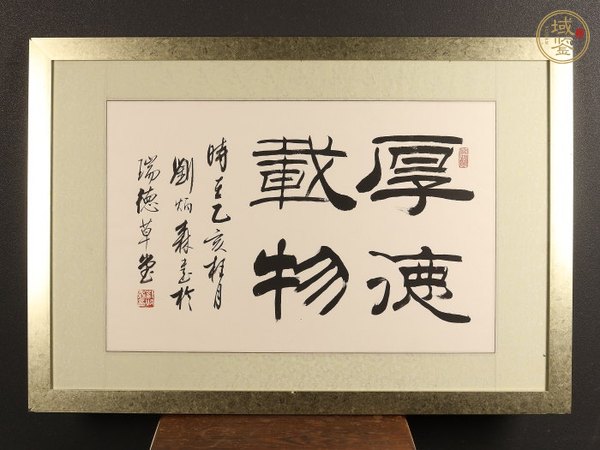 厚德
載物
時在乙亥桂月
劉炳森書於
瑞德草堂
域鉴